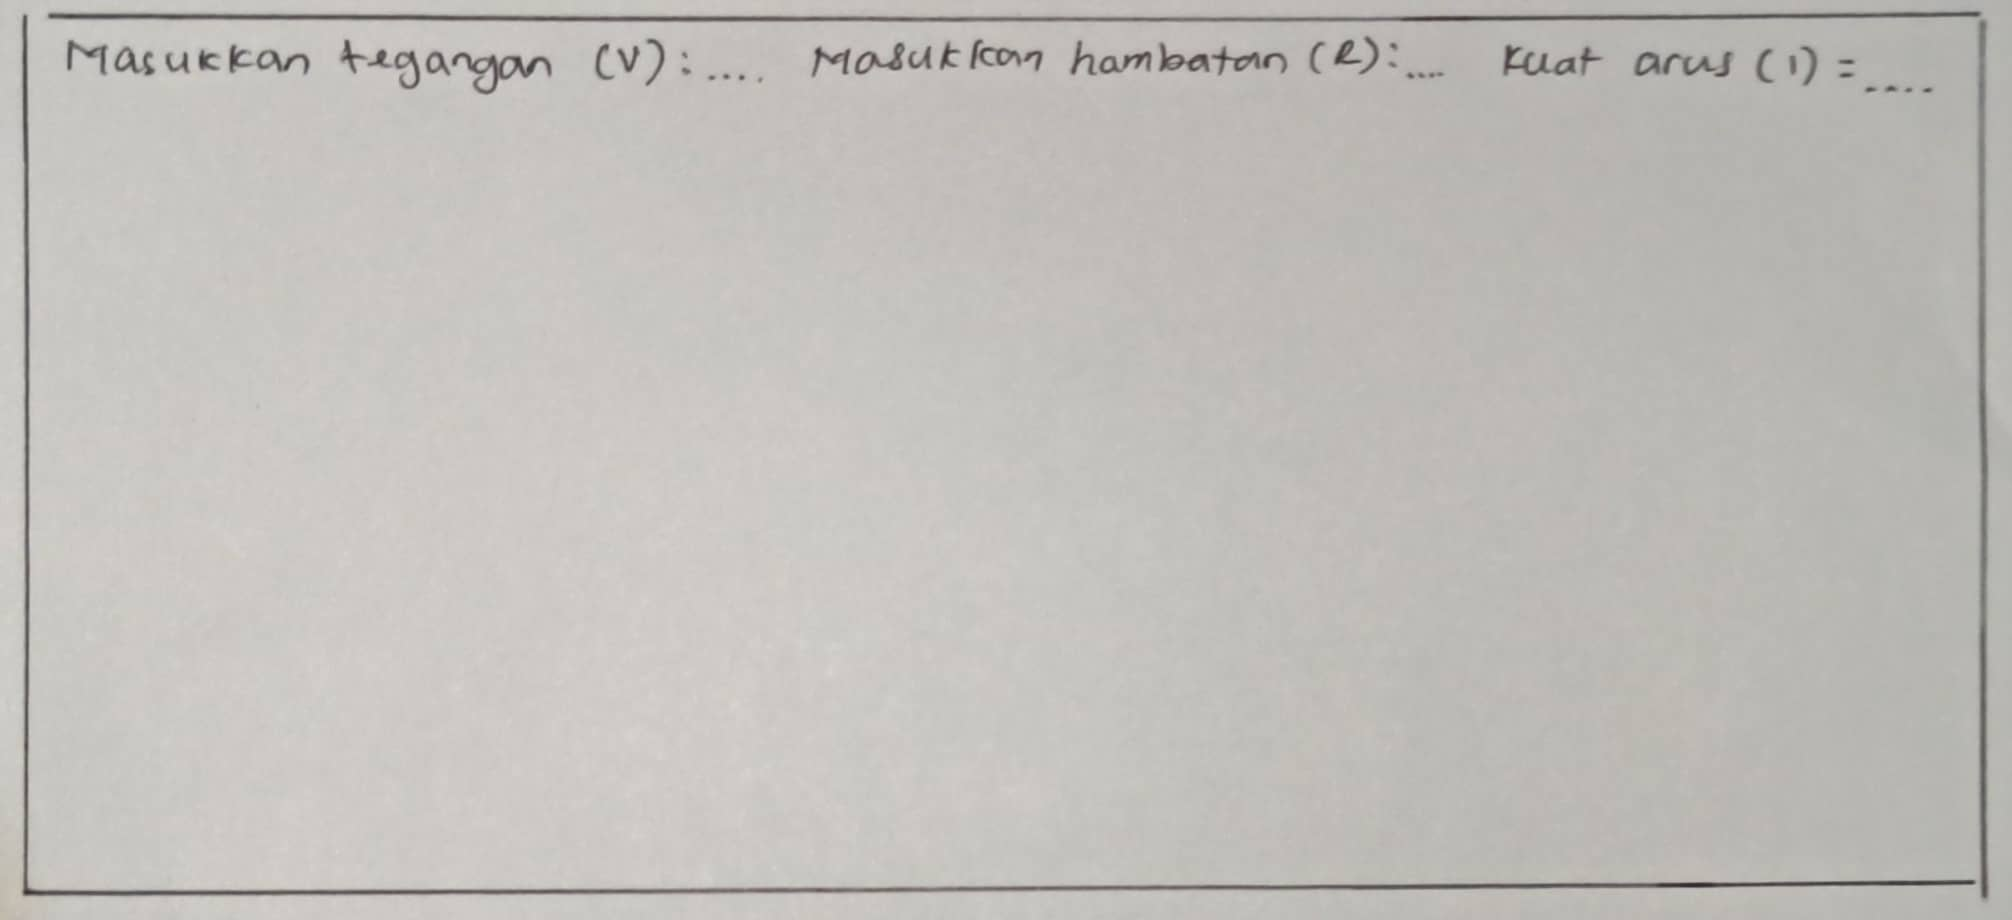 Masukkan tegangan (V): .... Masukkan hambatan (R): .... Kuat arus (I) = ....